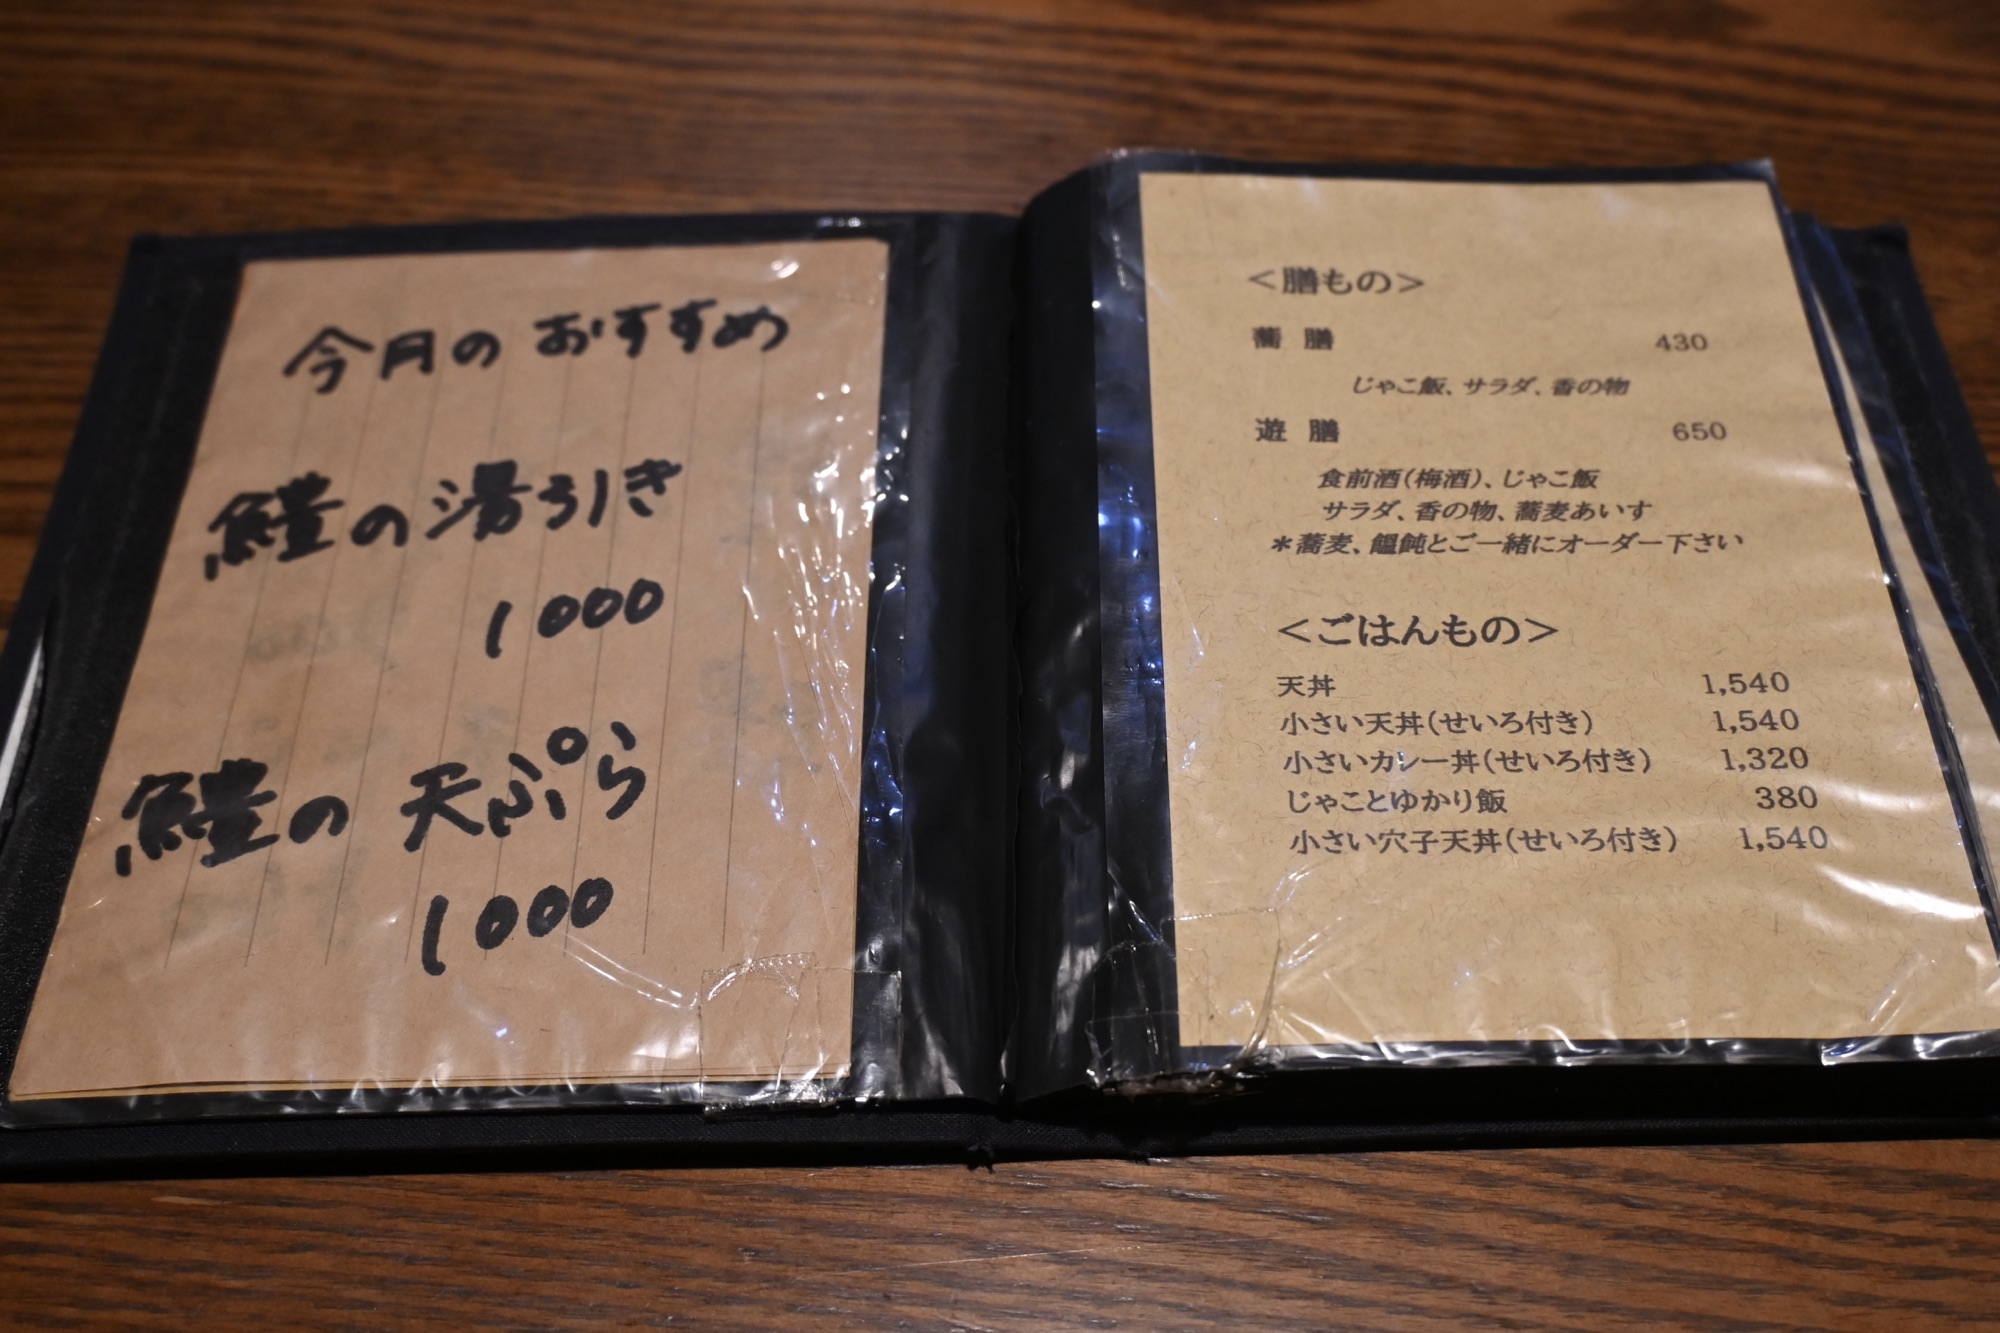 今月のおすすめ
鱧の湯引き
1000
鱧の天ぷら
1000
＜膳もの＞
蕎膳 430
じゃこ飯、サラダ、香の物
遊膳 650
食前酒(梅酒)、じゃこ飯
サラダ、香の物、蕎麦あいす
＊蕎麦、饂飩とご一緒にオーダー下さい
＜ごはんもの＞
天丼 1,540
小さい天丼(せいろ付き) 1,540
小さいカレー丼(せいろ付き) 1,320
じゃことゆかり飯 380
小さい穴子天丼(せいろ付き) 1,540